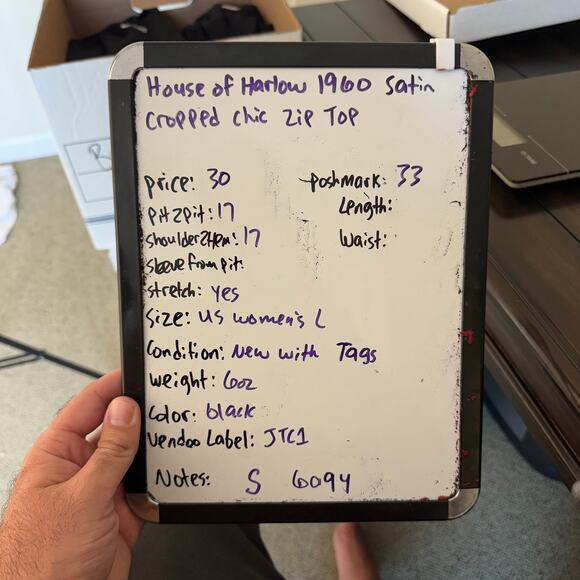 House of Harlow 1960 Satin
Cropped chic zip Top
price: 30
poshmark: 33
pit2pit: 17
Length:
shoulder2hem: 17
Waist:
sleeve from pit:
stretch: yes
Size: US women's L
Condition: New with Tags
weight: 6oz
Color: black
Vendoo Label: JTC1
Notes: S 6094